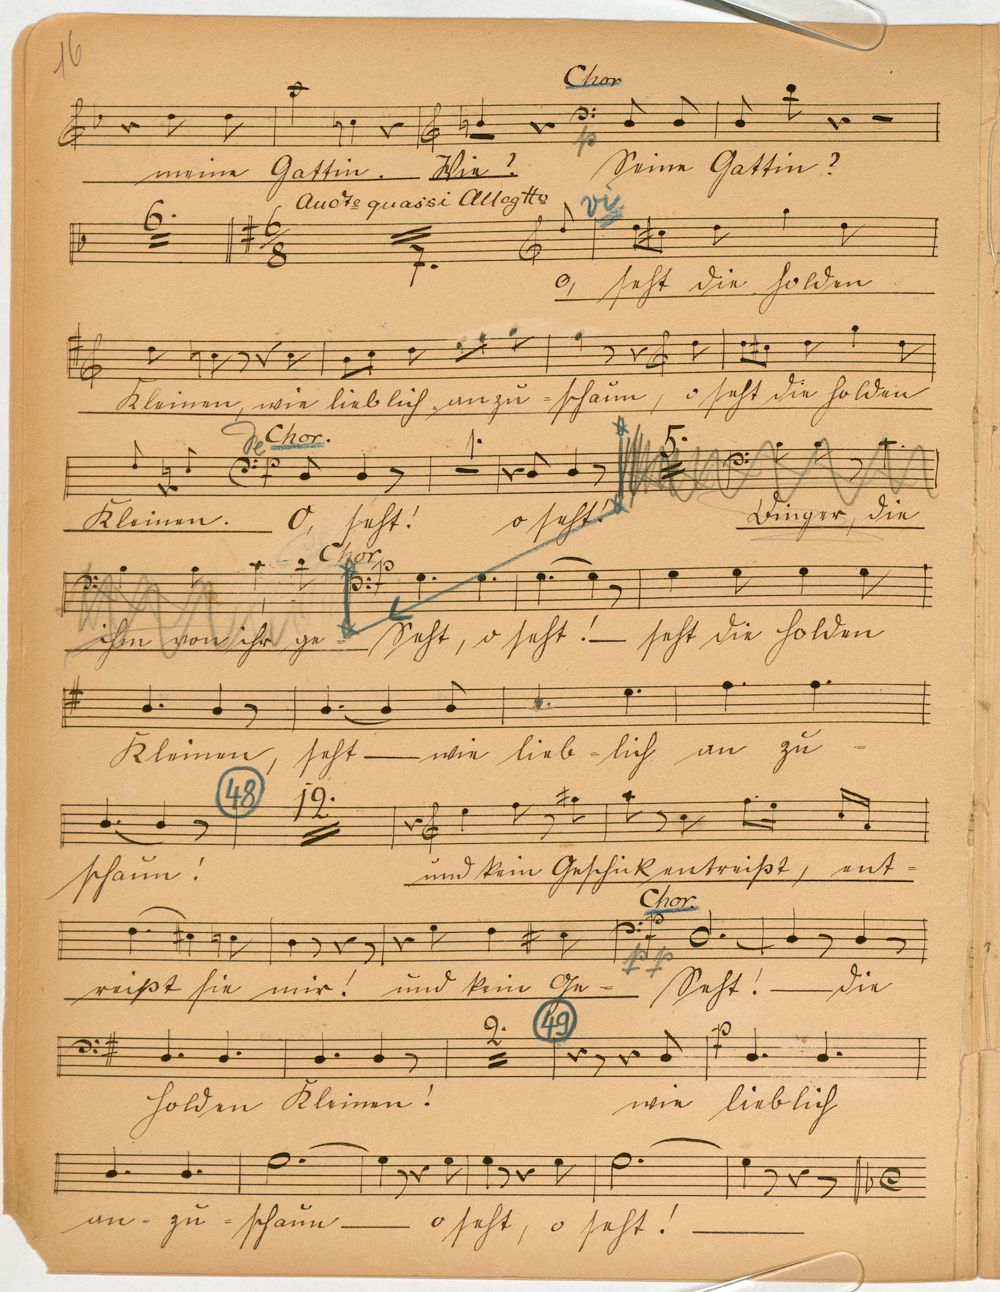 16
Chor
meine Gattin. Wie? Seine Gattin?
6. 6/8 Andte quasi Allegtto 7. vi
O, seht die holden
Kleinen, wie lieblich anzu-schaun, o seht die holden
de Chor. 1. 5.
Kleinen. O, seht! o seht! Dinger, die
Chor
ihm von ihr ge- Seht, o seht! seht die holden
Kleinen, seht wie lieb-lich an zu-
48 12.
schaun! und kein Geschick entreißt, ent-
Chor.
reißt sie mir! und kein Ge- pp Seht! die
2. 49 p
holden Kleinen! wie lieblich
an-zu-schaun o seht, o seht!